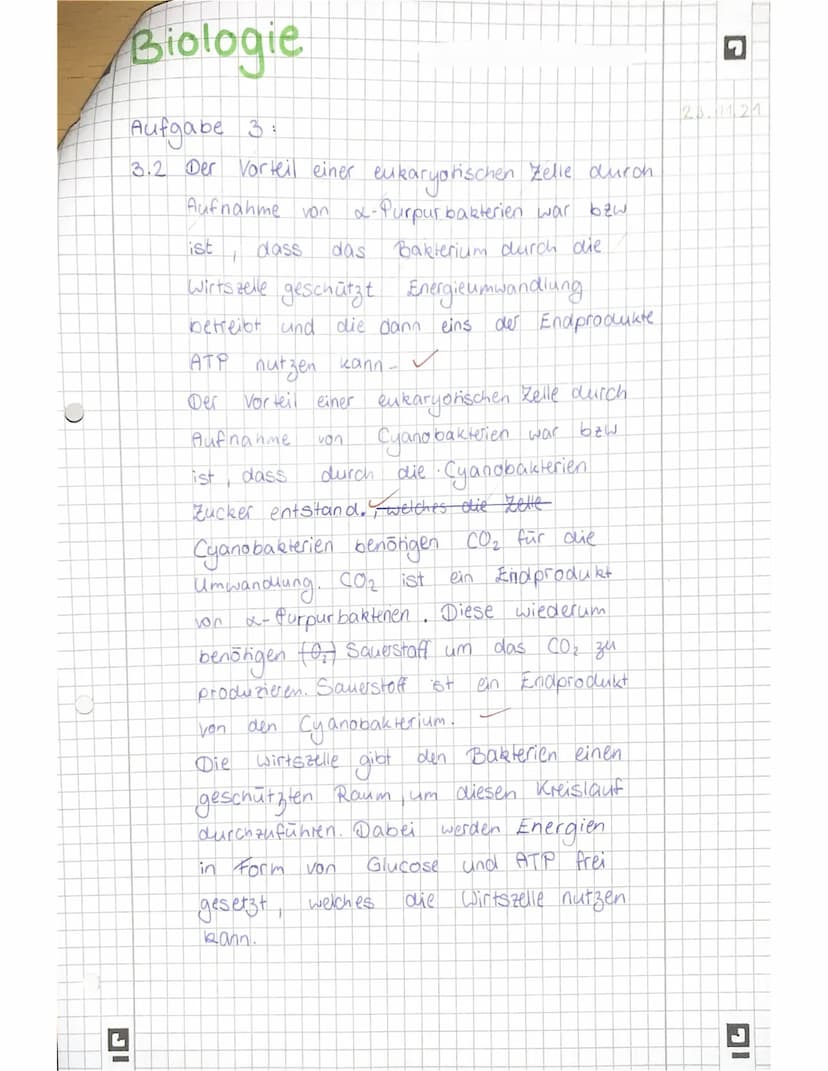 Biologie
23.11.21
Aufgabe 3:
3.2 Der Vorteil einer eukaryotischen Zelle durch
Aufnahme von α-Purpurbakterien war bzw
ist, dass das Bakterium durch die
Wirtszelle geschützt Energieumwandlung
betreibt und die dann eins der Endprodukte
ATP nutzen kann.
Der Vorteil einer eukaryotischen Zelle durch
Aufnahme von Cyanobakterien war bzw
ist, dass durch die Cyanobakterien
Zucker entstand. , welches die Zelle
Cyanobakterien benötigen CO₂ für die
Umwandlung. CO₂ ist ein Endprodukt
von α-Purpurbakterien. Diese wiederum
benötigen (O₂) Sauerstoff um das CO₂ zu
produzieren. Sauerstoff ist ein Endprodukt
von den Cyanobakterium.
Die Wirtszelle gibt den Bakterien einen
geschützten Raum, um diesen Kreislauf
durchzuführen. Dabei werden Energien
in Form von Glucose und ATP frei
gesetzt, welches die Wirtszelle nutzen
kann.